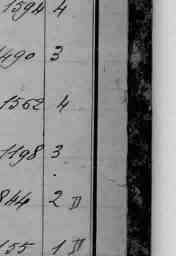 1594 4
490 3
1562 4
1198 3
844 2 D
155 1 D